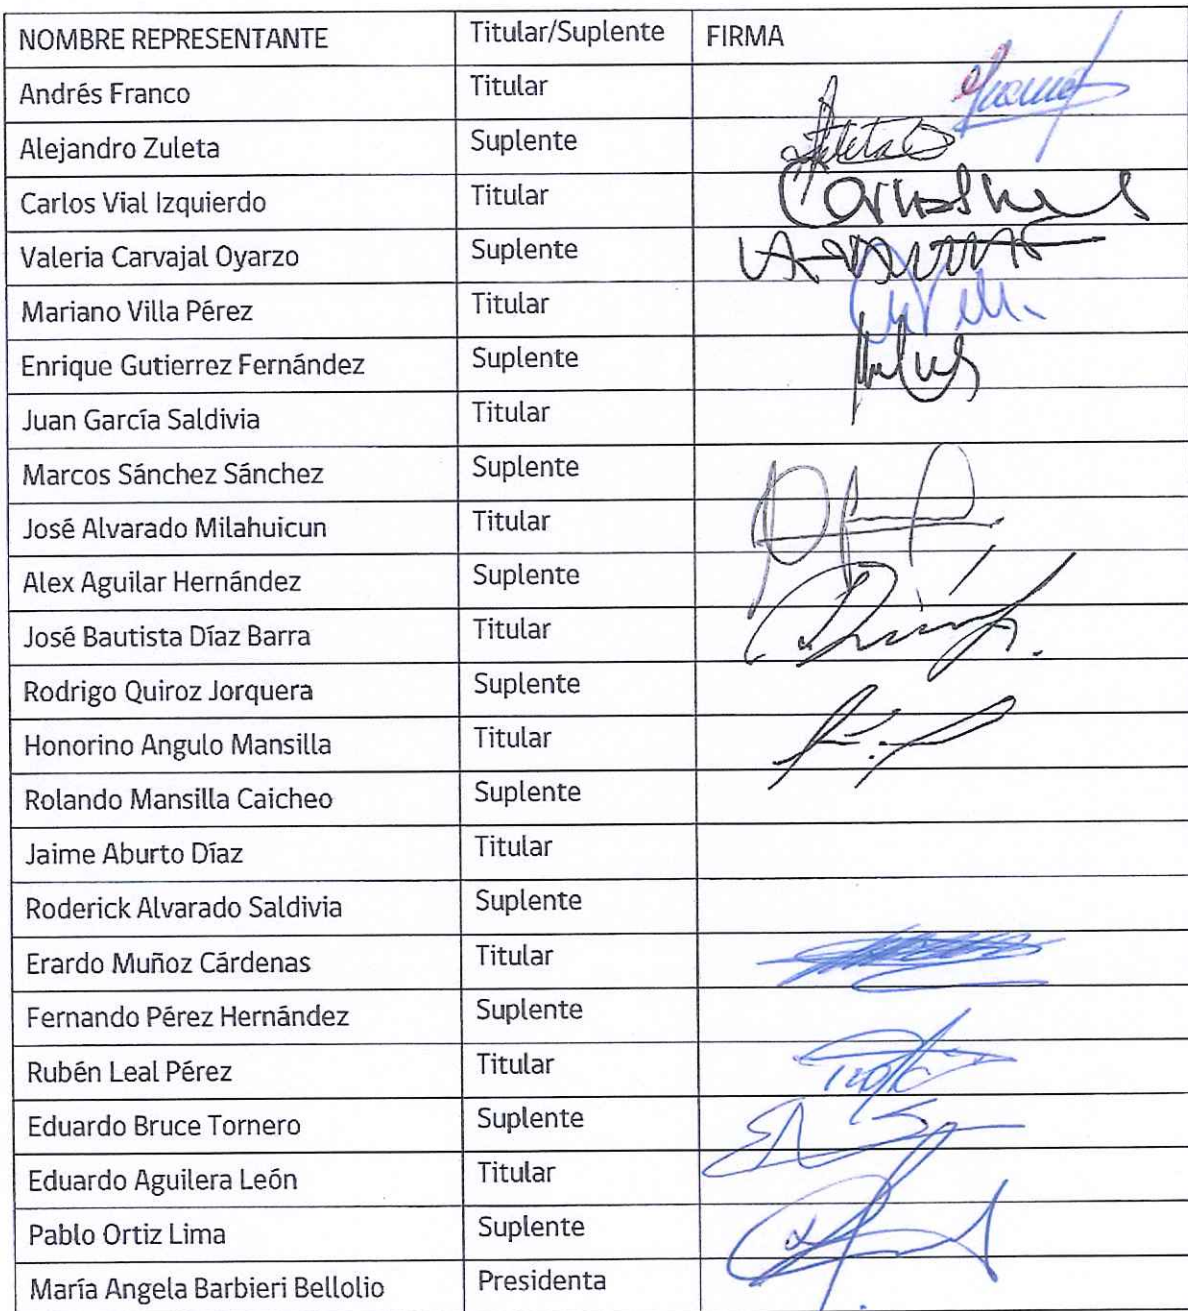 NOMBRE REPRESENTANTE Titular/Suplente FIRMA
Andrés Franco Titular
Alejandro Zuleta Suplente
Carlos Vial Izquierdo Titular
Valeria Carvajal Oyarzo Suplente
Mariano Villa Pérez Titular
Enrique Gutierrez Fernández Suplente
Juan García Saldivia Titular
Marcos Sánchez Sánchez Suplente
José Alvarado Milahuicun Titular
Alex Aguilar Hernández Suplente
José Bautista Díaz Barra Titular
Rodrigo Quiroz Jorquera Suplente
Honorino Angulo Mansilla Titular
Rolando Mansilla Caicheo Suplente
Jaime Aburto Díaz Titular
Roderick Alvarado Saldivia Suplente
Erardo Muñoz Cárdenas Titular
Fernando Pérez Hernández Suplente
Rubén Leal Pérez Titular
Eduardo Bruce Tornero Suplente
Eduardo Aguilera León Titular
Pablo Ortiz Lima Suplente
María Angela Barbieri Bellolio Presidenta